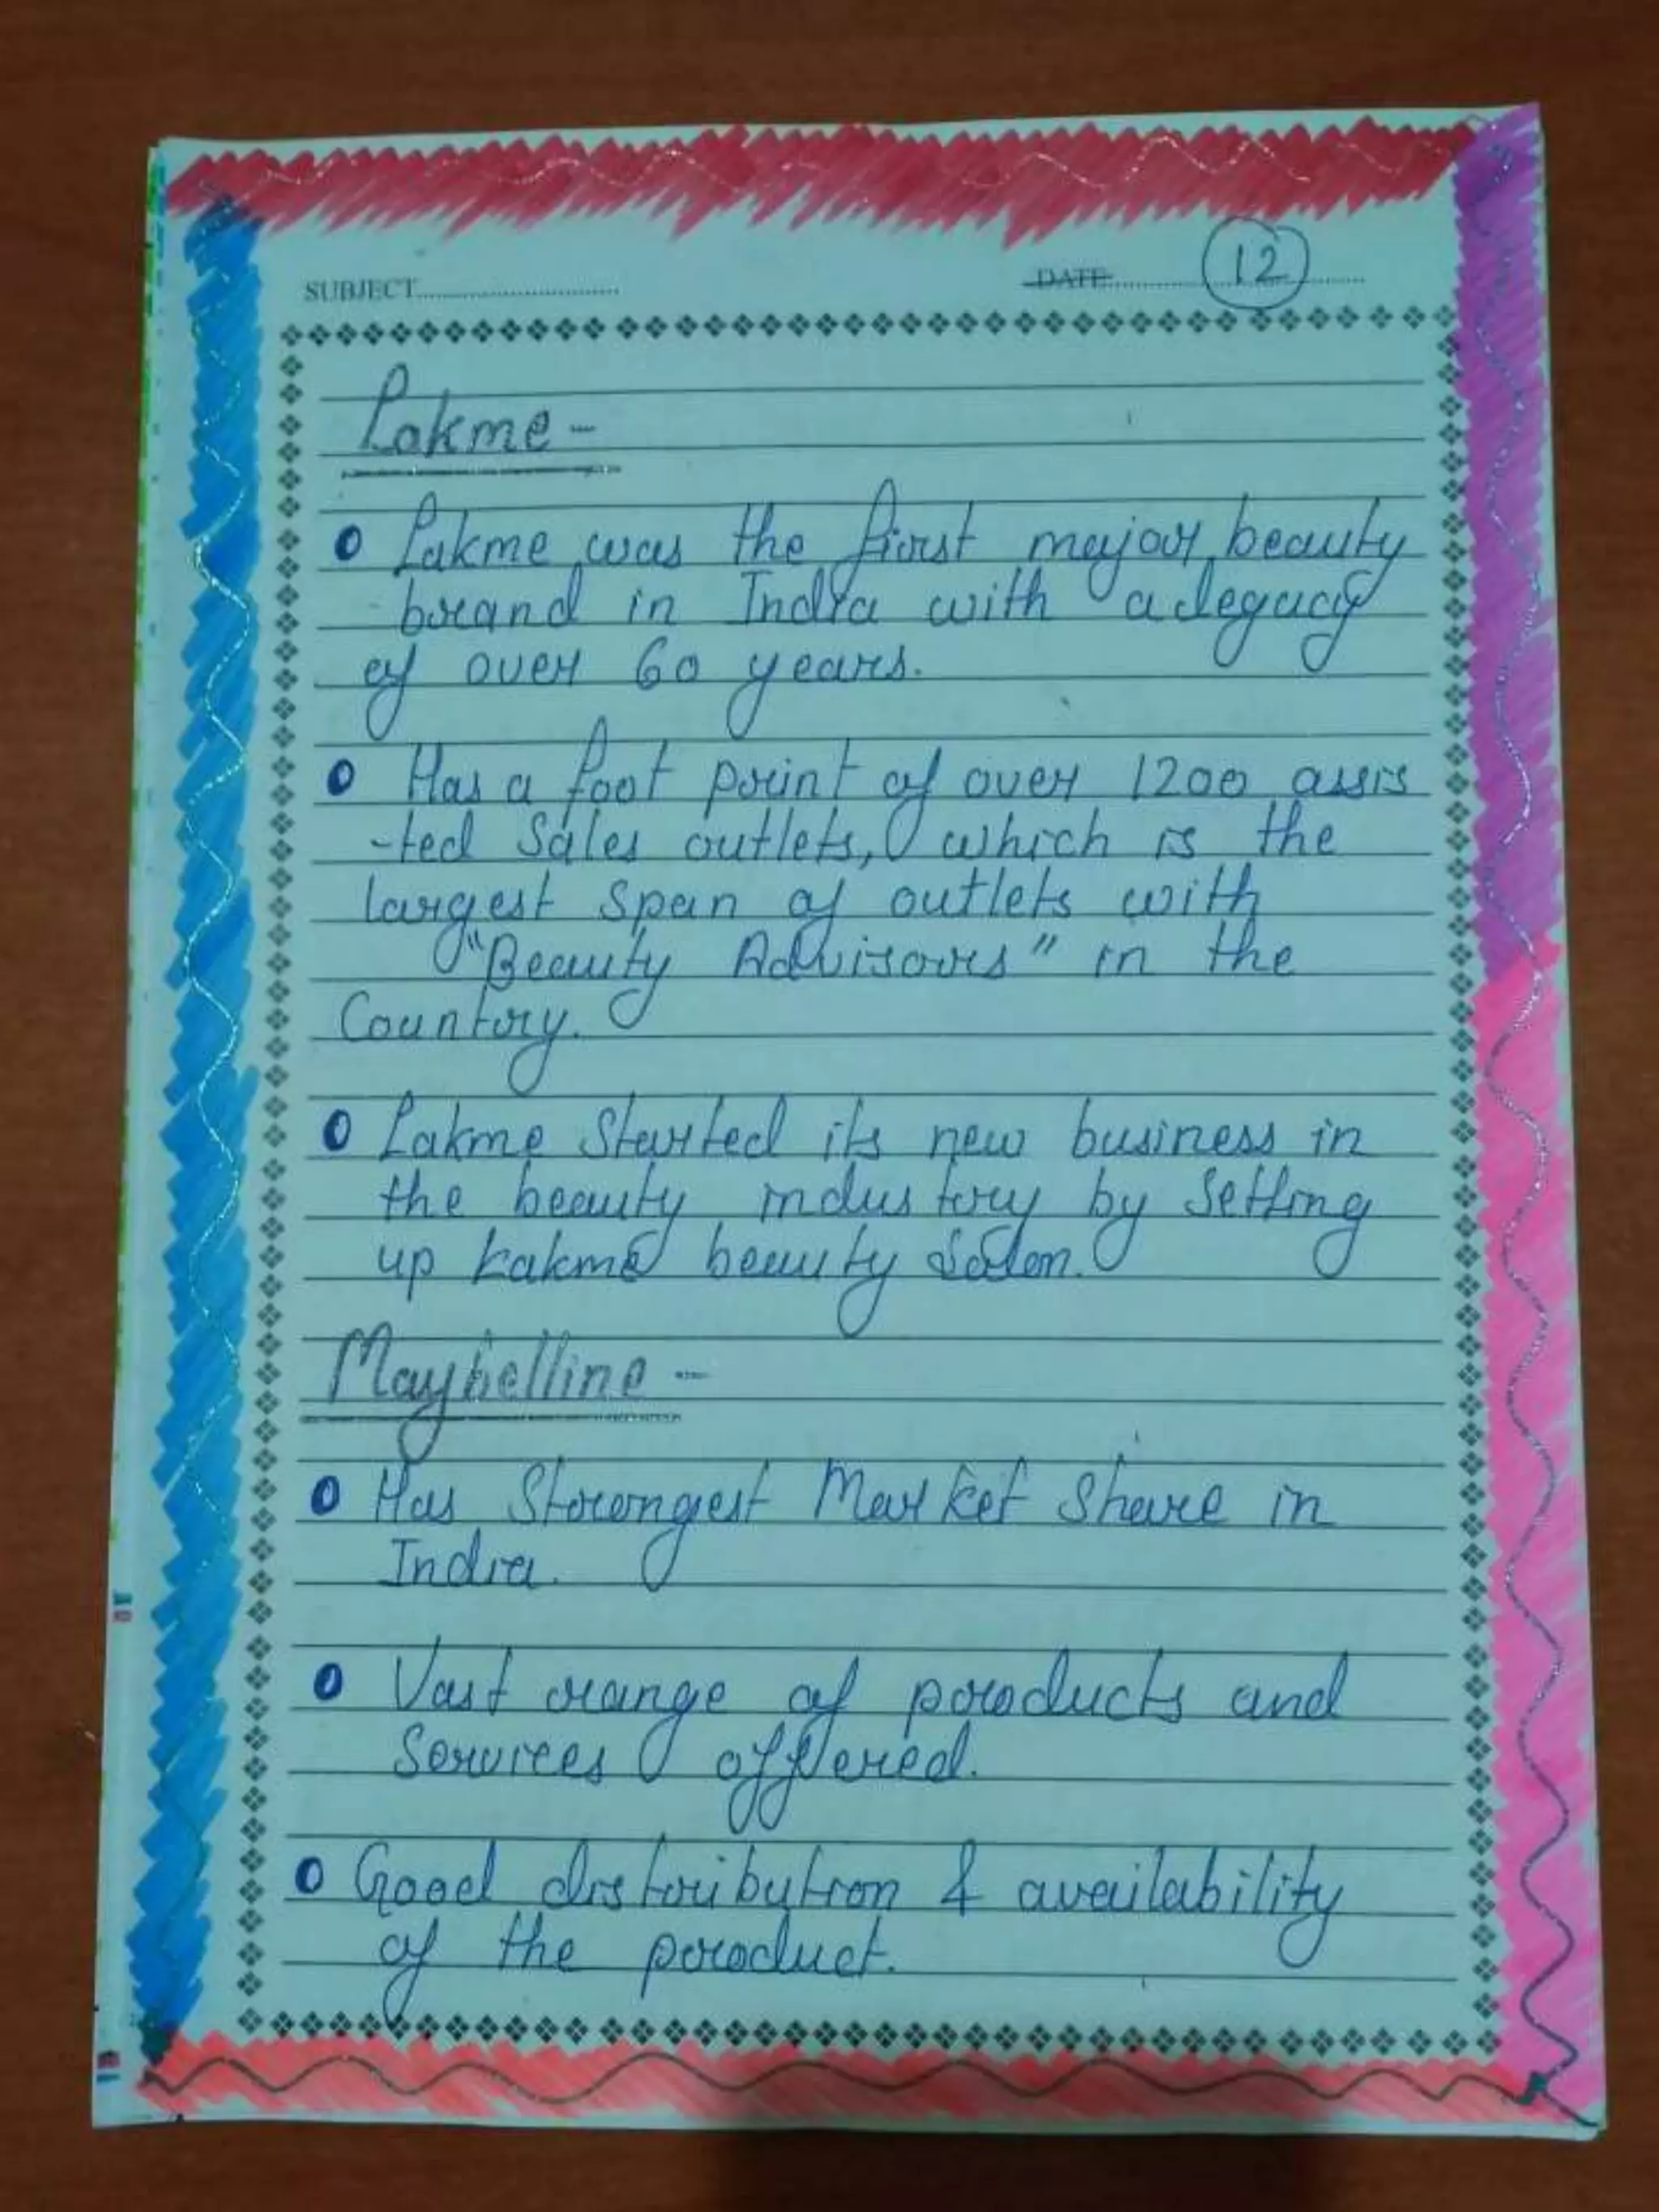 SUBJECT
DATE
12
Lakme -
Lakme was the first major beauty
brand in India with a legacy
of over 60 years.
Has a foot print of over 1200 assis
-ted Sales outlets, which is the
largest span of outlets with
"Beauty Advisors" in the
Country.
Lakme Started its new business in
the beauty industry by Setting
up Lakme beauty Salon.
Maybelline -
Has Strongest Market Share in
India.
Vast range of products and
Services offered.
Good distribution & availability
of the product.